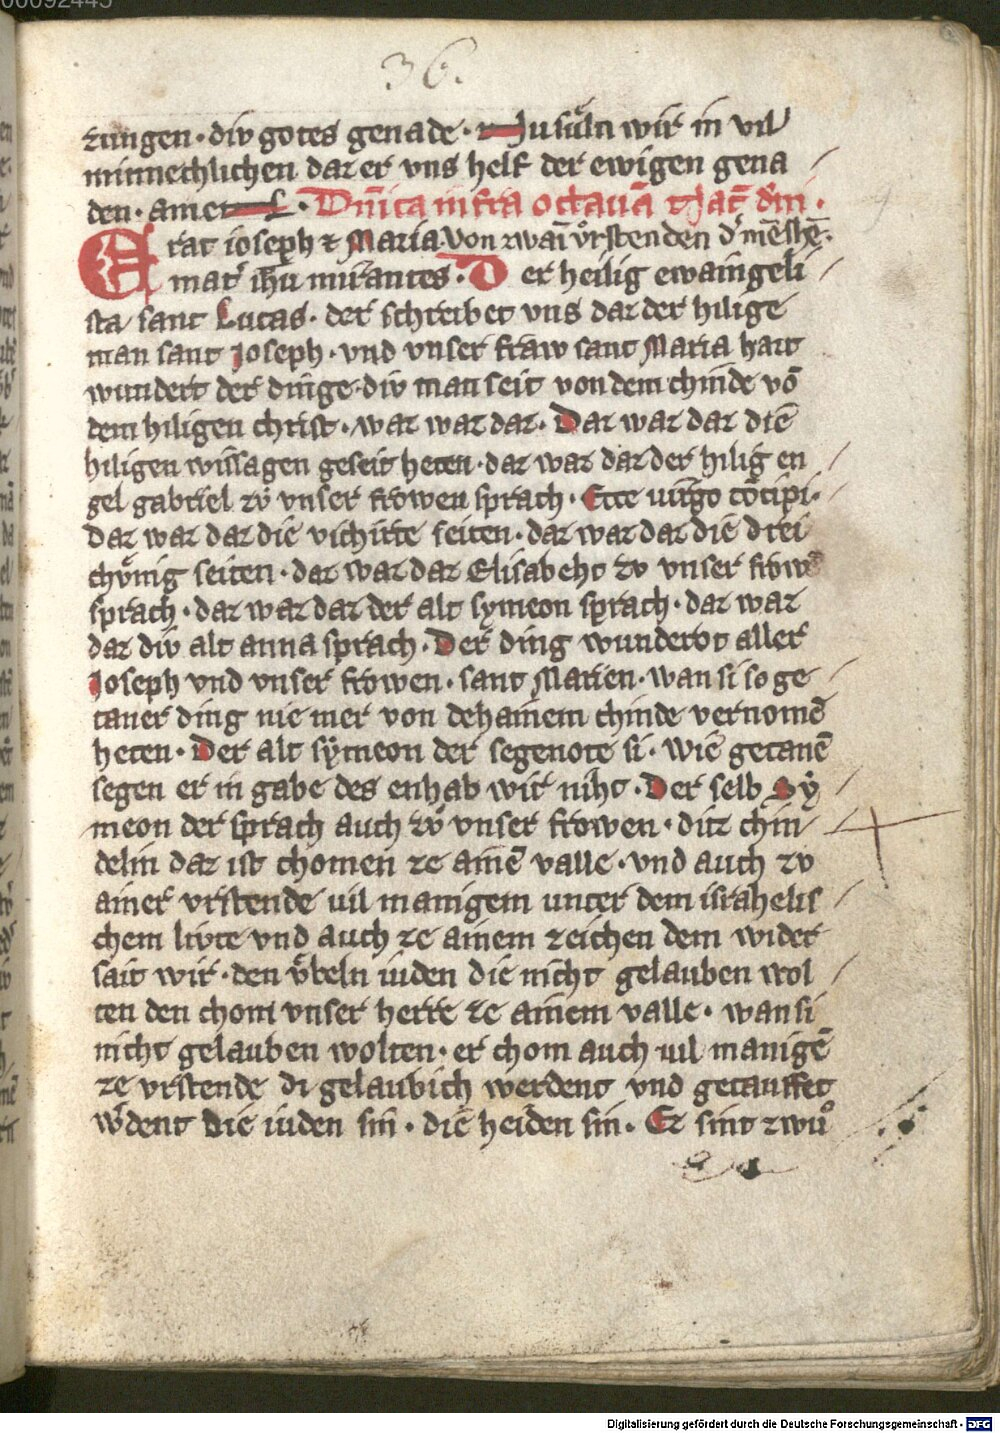 36.
zungen · div gotes genade · Nu suͤln wir in vil
minnechlichen daz er vns helf der ewigen gena
den · amen · Dn̄ica infra octauā Nat̄ dn̄i ·
Erat ioseph ⁊ Maria · Von zwaī vrstenden d' mēschē ·
mat' ih̄u mirantes · Der heilig ewaingeli
sta sant Lucas · der schreibet vns daz der hilige
man sant Joseph · vnd vnser fraw sant Maria hait
wundert der dinge · div man seit von dem chinde vō
dem hiligen christ · waz waz daz · Daz waz daz die
hiligen wissagen geseit heten · daz waz daz der hilig en
gel gabriel zv̊ vnser frowen sprach · Ecce uirgo cōcipi ·
daz waz daz die vichirte seiten · daz waz daz die drei
chv̊nig seiten · daz waz daz Elisabeht zv vnser frow̄
sprach · daz waz daz der alt symeon sprach · daz waz
daz div alt anna sprach · Der ding wundervt aller
Joseph vnd vnser frowen · sant Marien · wan si so ge
taner ding nie mer von dehainem chinde vernomē
heten · Der alt sẏmeon der segenote si · wie getanē
segen er in gabe des enhab wir niht · Der selb Sẏ
meon der sprach auch zv̊ vnser frowen · ditz chin
delin daz ist chomen ze ainē valle · vnd auch zv
ainer vrstende uil manigem unter dem israhelis
chem livte vnd auch ze ainem zeichen dem wider
sait wir · den v̊beln iuden die nicht gelauben wol
ten den chom vnser herre ze ainem valle · wan si
nicht gelauben wolten · er chom auch uil manigē
ze vrstende di gelaubich werdent vnd getauffet
w'dent Die iuden sin · die heiden sin · Ez sint zwu̇o
Digitalisierung gefördert durch die Deutsche Forschungsgemeinschaft - DFG